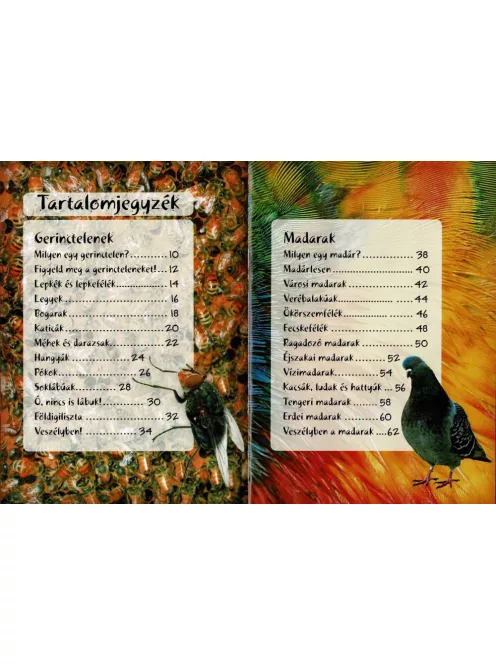 Tartalomjegyzék
Gerinctelenek
Milyen egy gerinctelen?...........10
Figyeld meg a gerincteleneket!...12
Lepkék és lepkefélék..................14
Legyek ................................. 16
Bogarak ............................... 18
Katicák ............................... 20
Méhek és darazsak.................22
Hangyák .................... 24
Pókok.......................26
Soklábúak................28
Ó, nincs is lábuk!............30
Földigiliszta ....................32
Veszélyben! ..................34
Madarak
Milyen egy madár?.................38
Madárlesen ........................40
Városi madarak ...................42
Verébalakúak......................44
Ökörszemfélék ....................46
Fecskefélék .......................48
Ragadozó madarak ...............50
Éjszakai madarak ........52
Vízimadarak...............54
Kacsák, ludak és hattyúk ...56
Tengeri madarak .......58
Erdei madarak .........60
Veszélyben a madarak ....62